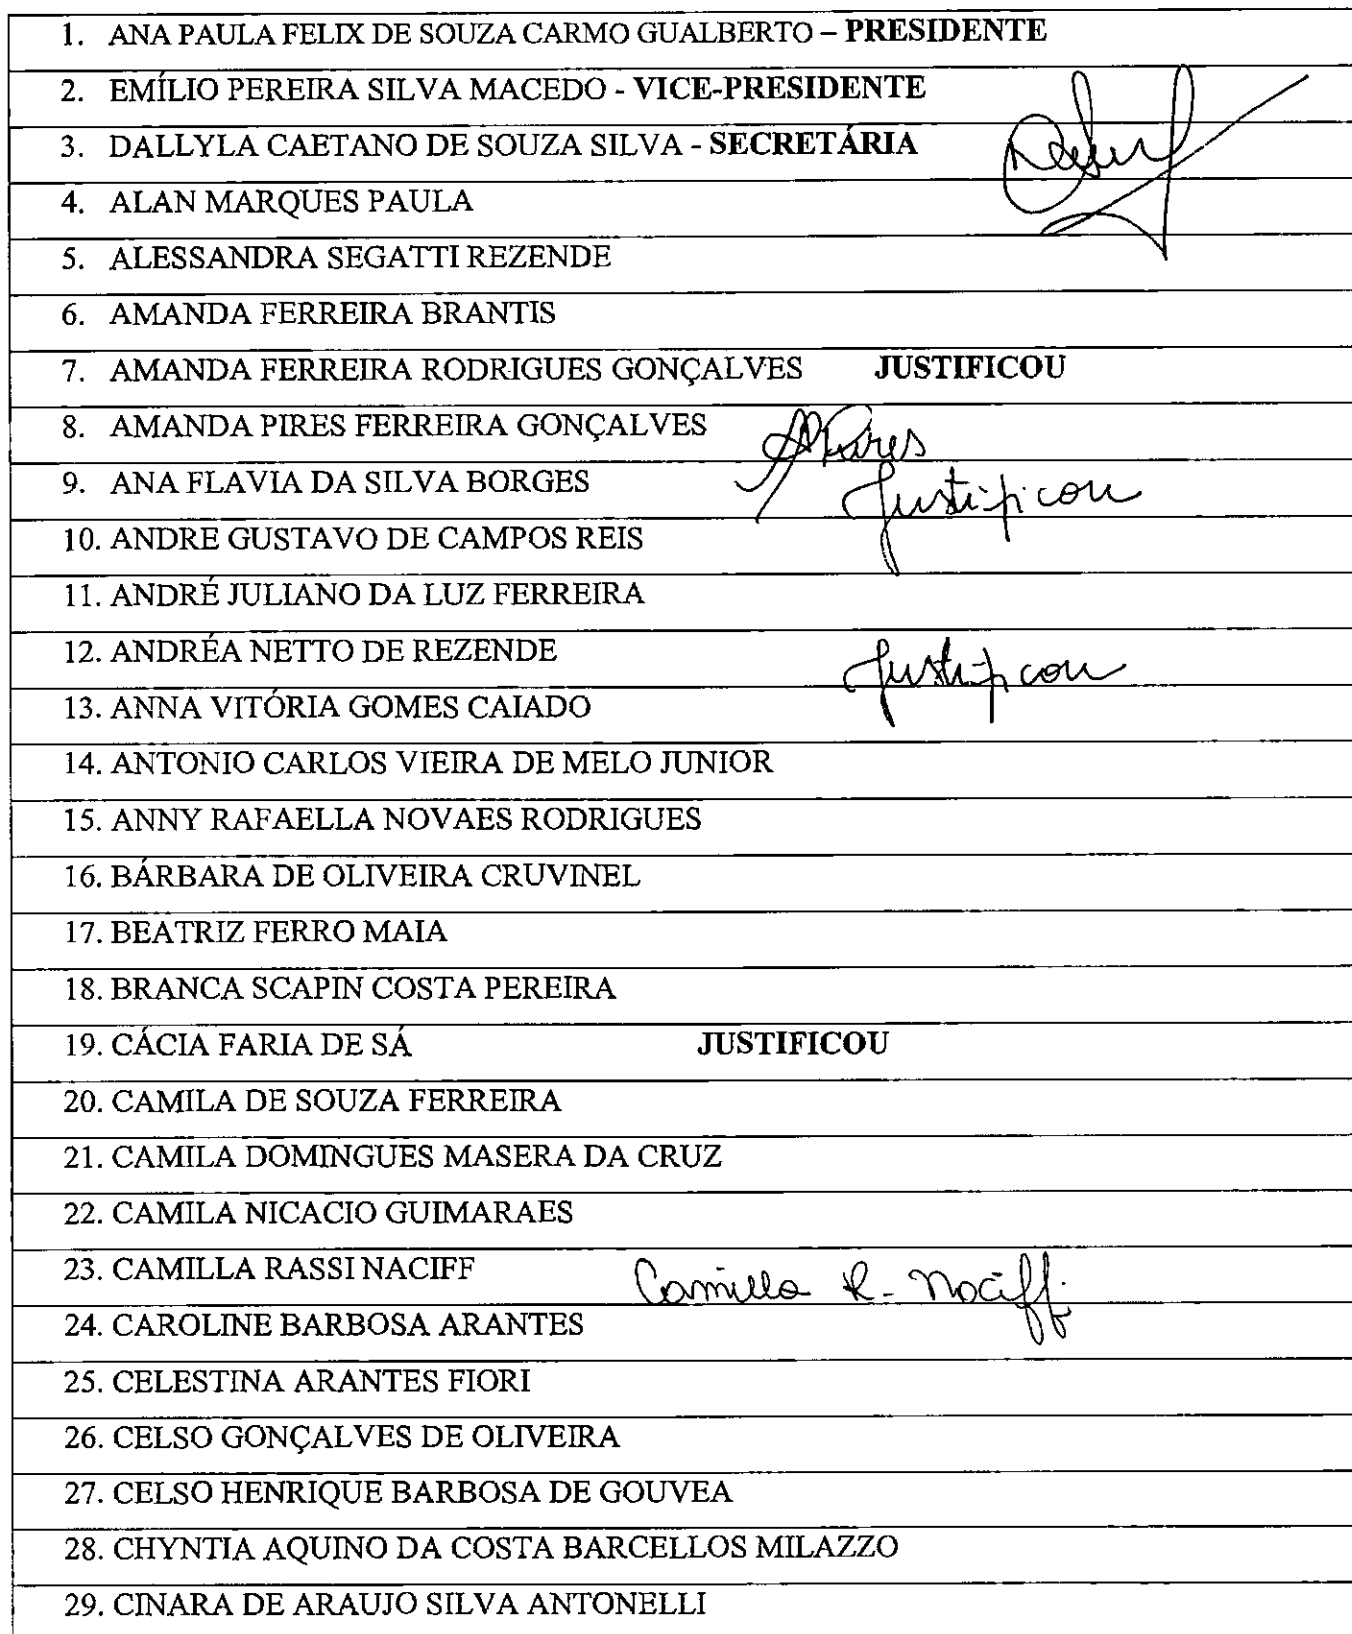 1. ANA PAULA FELIX DE SOUZA CARMO GUALBERTO – PRESIDENTE
2. EMÍLIO PEREIRA SILVA MACEDO - VICE-PRESIDENTE
3. DALLYLA CAETANO DE SOUZA SILVA - SECRETÁRIA
4. ALAN MARQUES PAULA
5. ALESSANDRA SEGATTI REZENDE
6. AMANDA FERREIRA BRANTIS
7. AMANDA FERREIRA RODRIGUES GONÇALVES JUSTIFICOU
8. AMANDA PIRES FERREIRA GONÇALVES
9. ANA FLAVIA DA SILVA BORGES Justificou
10. ANDRE GUSTAVO DE CAMPOS REIS
11. ANDRÉ JULIANO DA LUZ FERREIRA
12. ANDRÉA NETTO DE REZENDE Justificou
13. ANNA VITÓRIA GOMES CAIADO
14. ANTONIO CARLOS VIEIRA DE MELO JUNIOR
15. ANNY RAFAELLA NOVAES RODRIGUES
16. BÁRBARA DE OLIVEIRA CRUVINEL
17. BEATRIZ FERRO MAIA
18. BRANCA SCAPIN COSTA PEREIRA
19. CÁCIA FARIA DE SÁ JUSTIFICOU
20. CAMILA DE SOUZA FERREIRA
21. CAMILA DOMINGUES MASERA DA CRUZ
22. CAMILA NICACIO GUIMARAES
23. CAMILLA RASSI NACIFF Camilla R. Naciff.
24. CAROLINE BARBOSA ARANTES
25. CELESTINA ARANTES FIORI
26. CELSO GONÇALVES DE OLIVEIRA
27. CELSO HENRIQUE BARBOSA DE GOUVEA
28. CHYNTIA AQUINO DA COSTA BARCELLOS MILAZZO
29. CINARA DE ARAUJO SILVA ANTONELLI